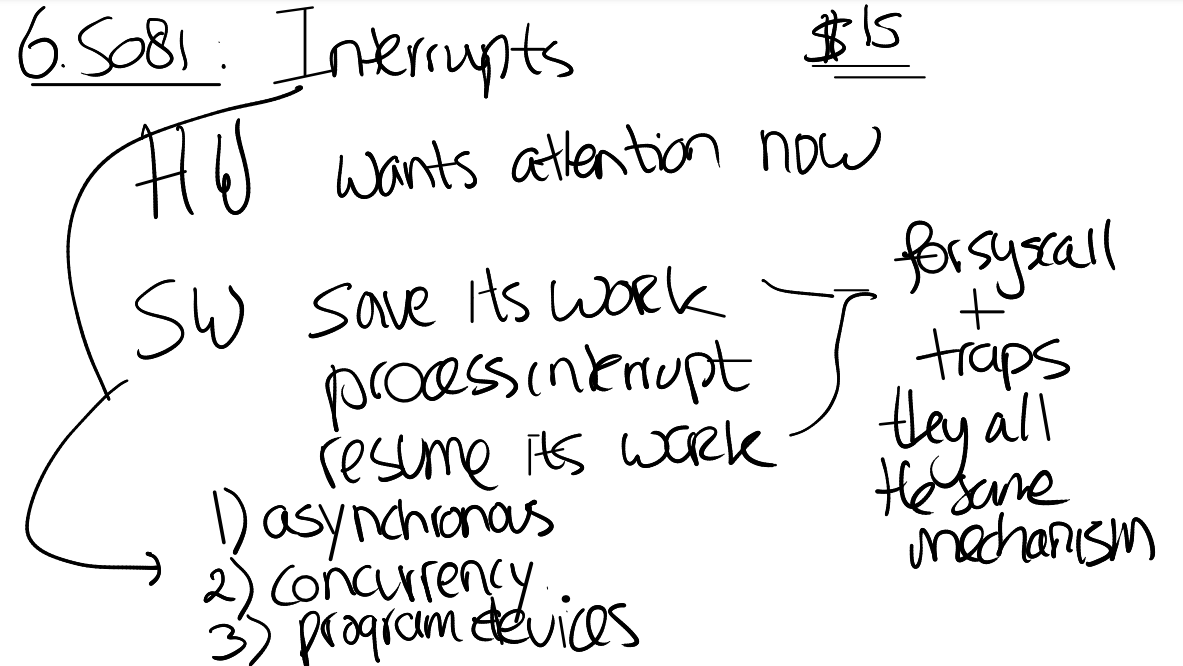 6.S081: Interrupts
$ 15
HW wants attention now
SW save its work
process interrupt
resume its work
for syscall
+
traps
they all
the same
mechanism
1) asynchronous
2) concurrency
3) program devices